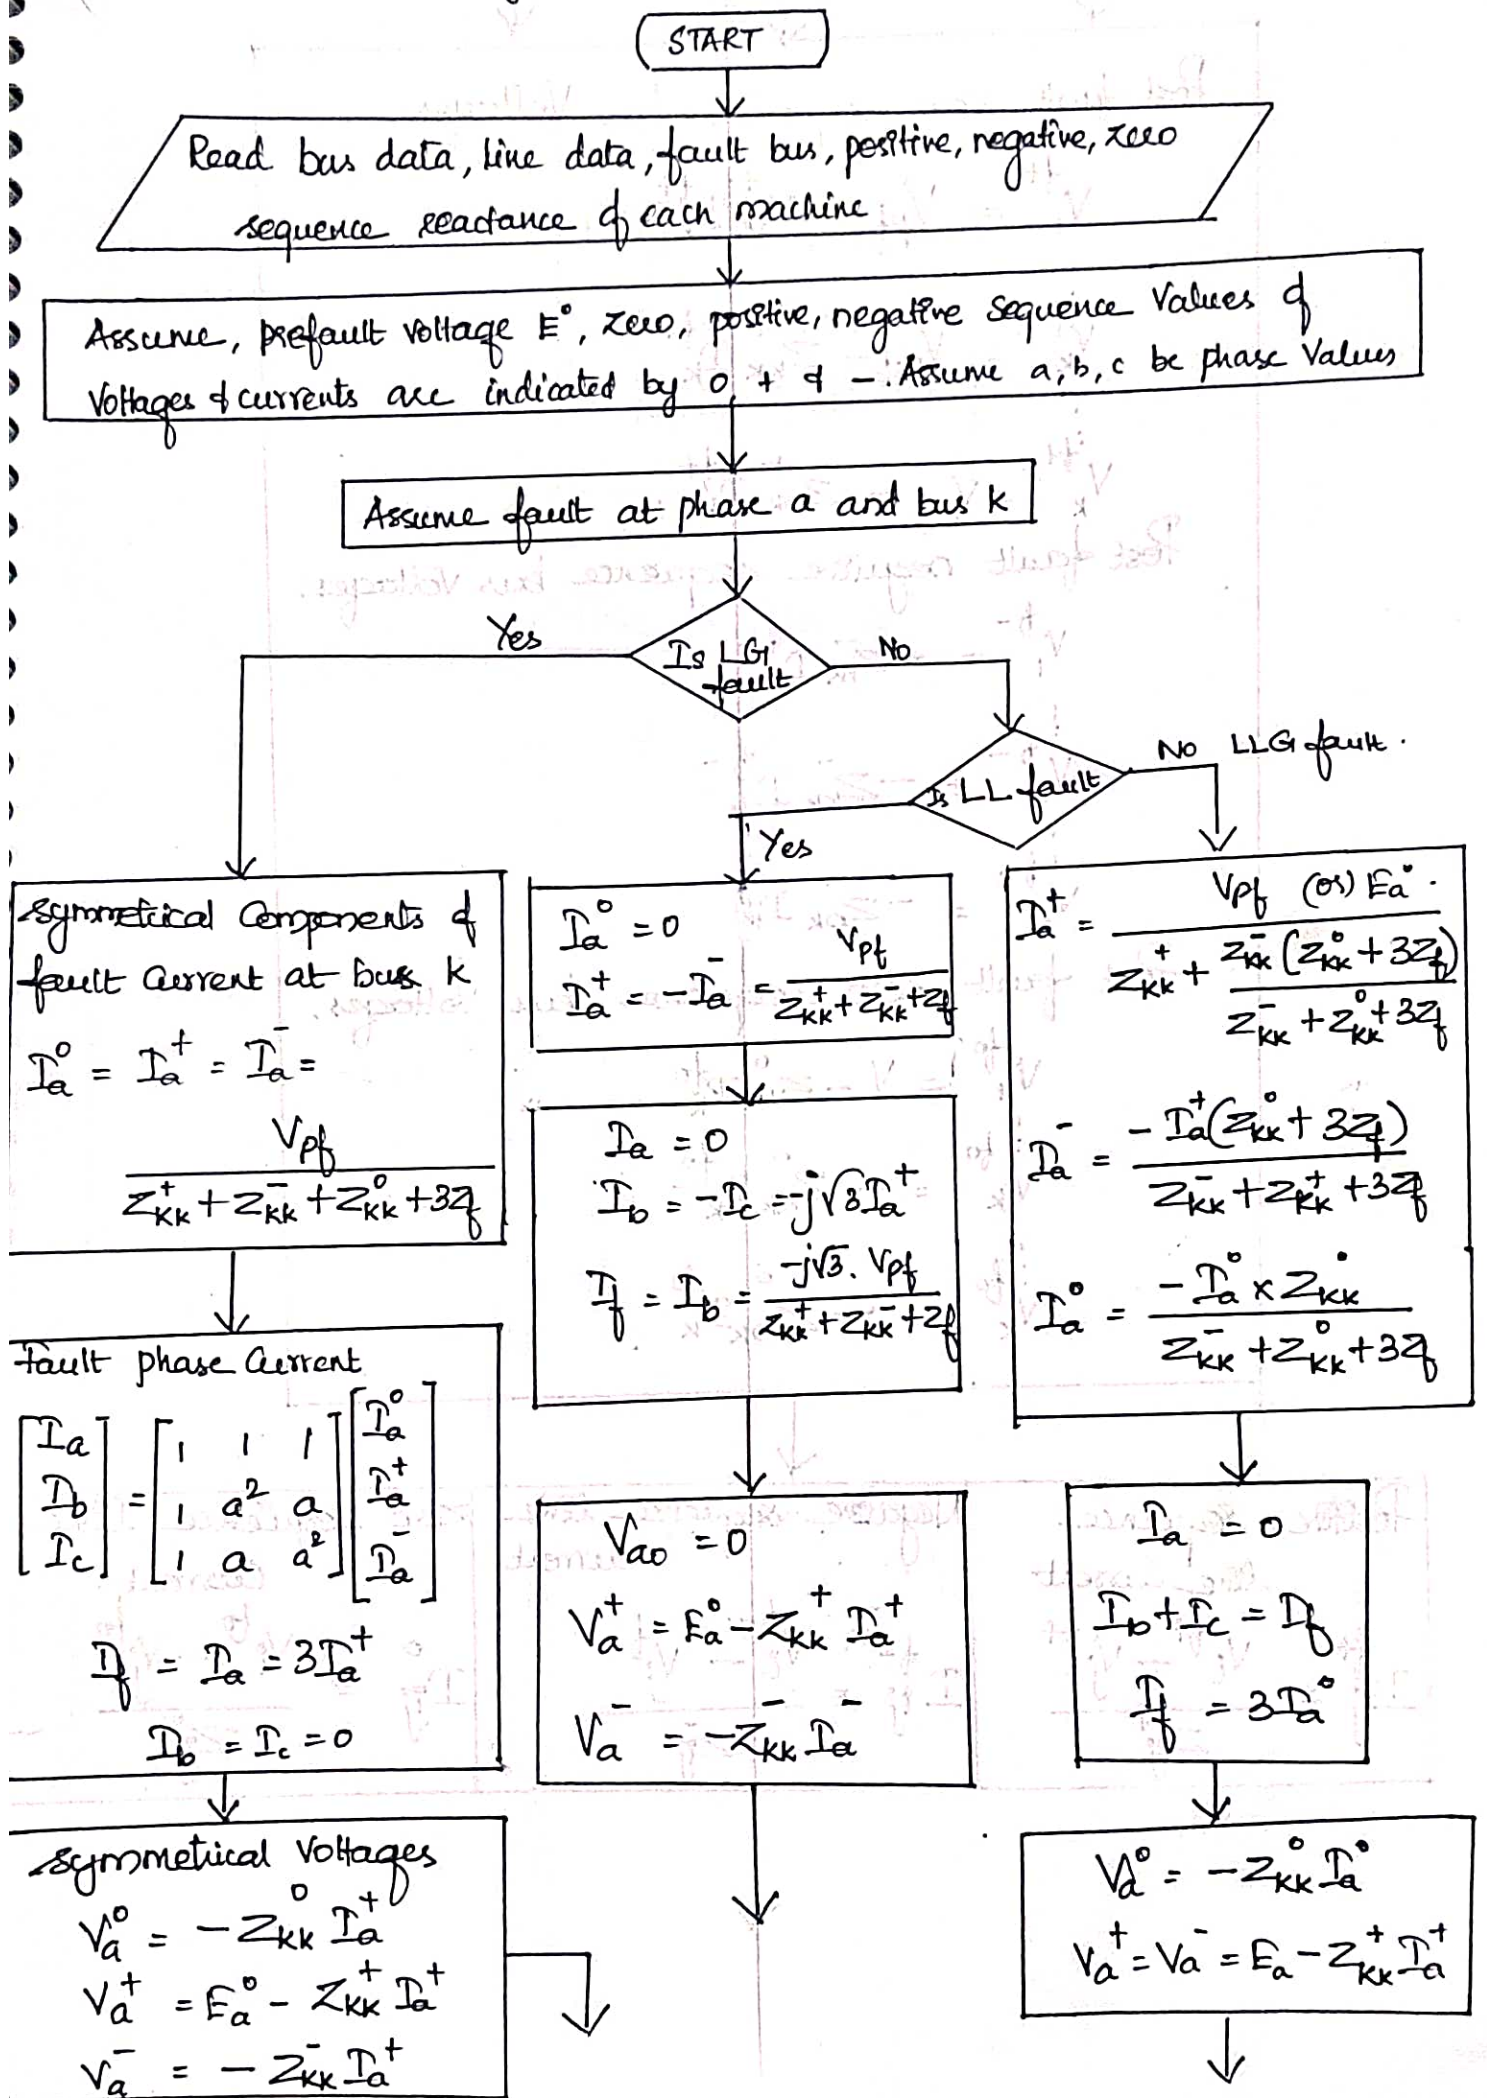 START
Read bus data, line data, fault bus, positive, negative, zero
sequence reactance of each machine
Assume, prefault voltage E°, zero, positive, negative sequence values of
Voltages & currents are indicated by 0 + & -. Assume a, b, c be phase values
Assume fault at phase a and bus k
Is LG
fault
Yes
No
Is LL fault
No LLG fault.
Yes
Symmetrical Components of
fault Current at bus k
Ia⁰ = Ia⁺ = Ia⁻ =
Vpf
Zkk⁺ + Zkk⁻ + Zkk⁰ + 3Zf
Fault phase Current
[Ia] = [1 1 1] [Ia⁰]
[Ib] = [1 a² a] [Ia⁺]
[Ic] = [1 a a²] [Ia⁻]
If = Ia = 3Ia⁺
Ib = Ic = 0
Symmetrical Voltages
Va⁰ = - Zkk⁰ Ia⁺
Va⁺ = Ea⁰ - Zkk⁺ Ia⁺
Va⁻ = - Zkk⁻ Ia⁺
Ia⁰ = 0
Ia⁺ = -Ia⁻ = Vpf / Zkk⁺ + Zkk⁻ + Zf
Ia = 0
Ib = -Ic = -j√3 Ia⁺
If = Ib = -j√3. Vpf / Zkk⁺ + Zkk⁻ + Zf
Vao = 0
Va⁺ = Ea⁰ - Zkk⁺ Ia⁺
Va⁻ = -Zkk⁻ Ia⁻
Ia⁺ = Vpf (or) Ea° . / Zkk⁺ + Zkk⁻ (Zkk⁰ + 3Zf) / Zkk⁻ + Zkk⁰ + 3Zf
Ia⁻ = - Ia⁺ (Zkk⁰ + 3Zf) / Zkk⁻ + Zkk⁺ + 3Zf
Ia⁰ = - Ia⁰ x Zkk° / Zkk⁻ + Zkk⁰ + 3Zf
Ia = 0
Ib + Ic = If
If = 3Ia⁰
Va⁰ = - Zkk⁰ Ia⁰
Va⁺ = Va⁻ = Ea - Zkk⁺ Ia⁺